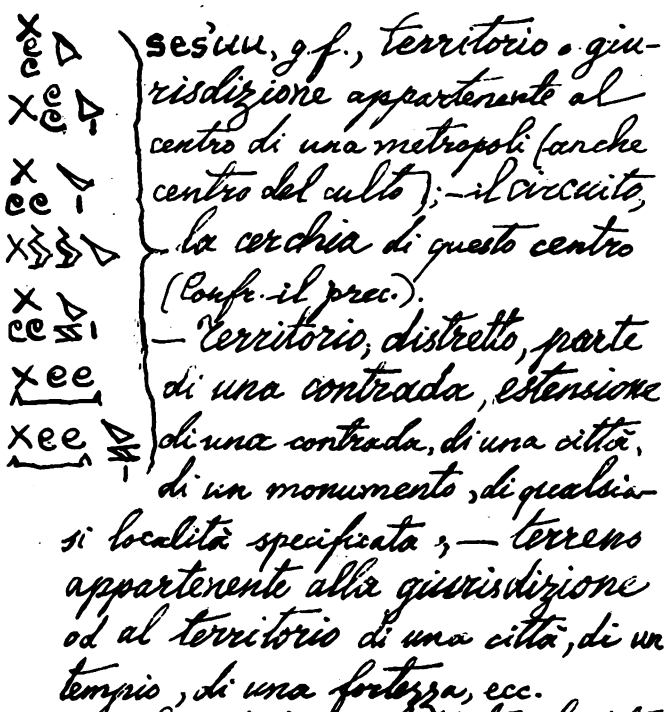 ses'uu, g.f., territorio o giu-
risdizione appartenente al
centro di una metropoli (anche
centro del culto); — il circuito,
la cerchia di questo centro
(Confr. il prec.).
— Territorio, distretto, parte
di una contrada, estensione
di una contrada, di una città,
di un monumento, di qualsia-
si località specificata, — terreno
appartenente alla giurisdizione
od al territorio di una città, di un
tempio, di una fortezza, ecc.